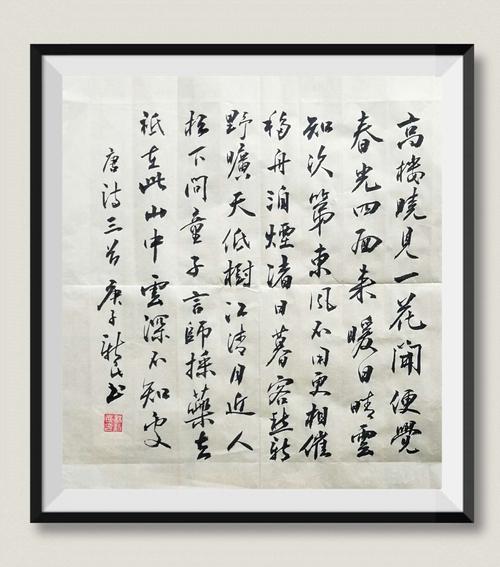 高楼曉見一花開便覺
春光四面来暖日晴雲
知次第東風不用更相催
移舟泊煙渚日暮客愁新
野曠天低樹江清月近人
松下問童子言師採藥去
祇在此山中雲深不知處
唐诗三首 庚子 书